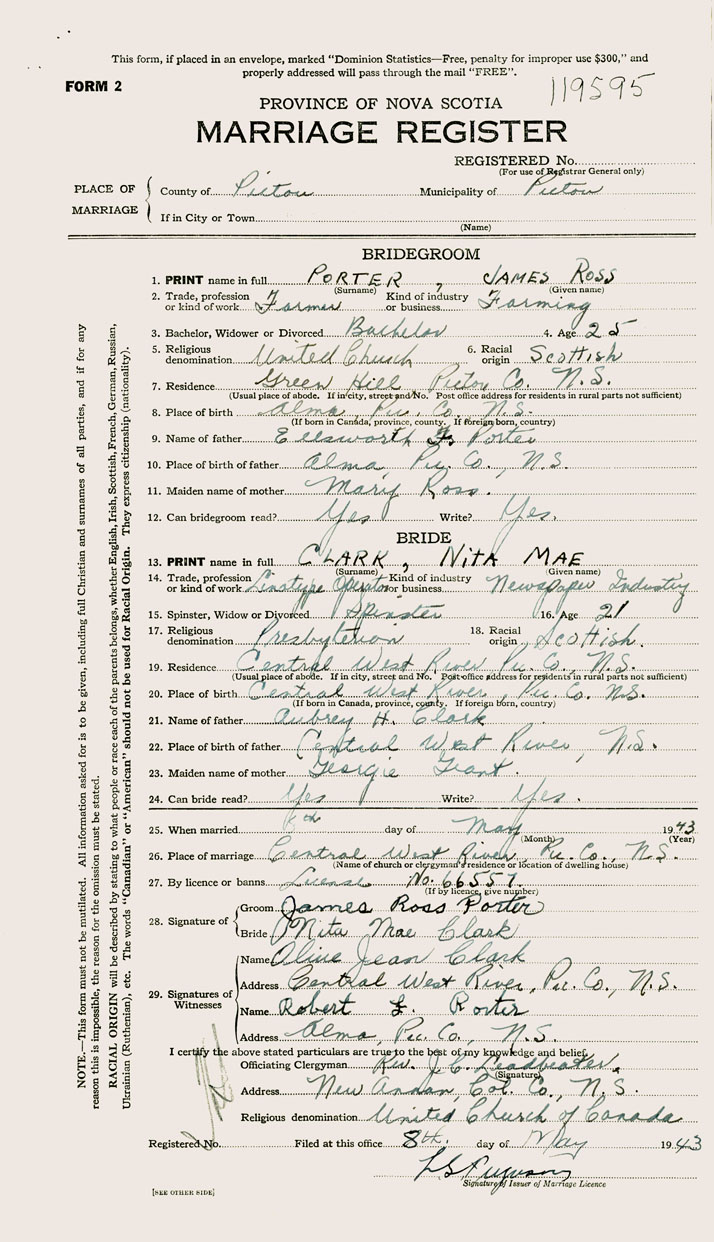 This form, if placed in an envelope, marked "Dominion Statistics—Free, penalty for improper use $300," and
properly addressed will pass through the mail "FREE".
FORM 2
119595
PROVINCE OF NOVA SCOTIA
MARRIAGE REGISTER
REGISTERED No.
(For use of Registrar General only)
PLACE OF MARRIAGE
County of Pictou Municipality of Pictou
If in City or Town
(Name)
BRIDEGROOM
1. PRINT name in full PORTER, JAMES ROSS
(Surname) (Given name)
2. Trade, profession or kind of work Farmer Kind of industry or business Farming
3. Bachelor, Widower or Divorced Bachelor 4. Age 25
5. Religious denomination United Church 6. Racial origin Scottish
7. Residence Green Hill Pictou Co. N.S.
(Usual place of abode. If in city, street and No. Post office address for residents in rural parts not sufficient)
8. Place of birth Alma, Pic. Co. N.S.
(If born in Canada, province, county. If foreign born, country)
9. Name of father Ellsworth F. Porter
10. Place of birth of father Alma, Pic. Co., N.S.
11. Maiden name of mother Mary Ross.
12. Can bridegroom read? Yes Write? Yes.
BRIDE
13. PRINT name in full CLARK, NITA MAE
(Surname) (Given name)
14. Trade, profession or kind of work Linotype Operator Kind of industry or business Newspaper Industry
15. Spinster, Widow or Divorced Spinster 16. Age 21
17. Religious denomination Presbyterian 18. Racial origin Scottish.
19. Residence Central West River Pic. Co., N.S.
(Usual place of abode. If in city, street and No. Post office address for residents in rural parts not sufficient)
20. Place of birth Central West River, Pic. Co. N.S.
(If born in Canada, province, county. If foreign born, country)
21. Name of father Aubrey H. Clark
22. Place of birth of father Central West River, N.S.
23. Maiden name of mother Georgie Grant.
24. Can bride read? Yes Write? Yes.
25. When married 6th day of May 1943
(Month) (Year)
26. Place of marriage Central West River, Pic. Co., N.S.
(Name of church or clergyman's residence or location of dwelling house)
27. By licence or banns License No. 66557.
(If by licence, give number)
28. Signature of
Groom James Ross Porter
Bride Nita Mae Clark
29. Signatures of Witnesses
Name Alive Jean Clark
Address Central West River, Pic. Co., N.S.
Name Robert L. Porter
Address Alma, Pic. Co., N.S.
I certify the above stated particulars are true to the best of my knowledge and belief.
Officiating Clergyman Rev. J. C. Leadbeater.
(Signature)
Address New Annan, Col. Co., N.S.
Religious denomination United Church of Canada
Registered No. Filed at this office 8th. day of May 1943
Signature of Issuer of Marriage Licence
[SEE OTHER SIDE]
NOTE.—This form must not be mutilated. All information asked for is to be given, including full Christian and surnames of all parties, and if for any
reason this is impossible, the reason for the omission must be stated.
RACIAL ORIGIN will be described by stating to what people or race each of the parents belongs, whether English, Irish, Scottish, French, German, Russian,
Ukrainian (Ruthenian), etc. The words "Canadian" or "American" should not be used for Racial Origin. They express citizenship (nationality).